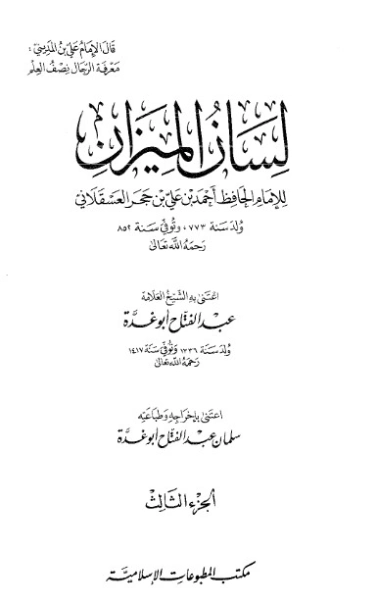 قَالَ الإِمَامُ عَلِيُّ بْنُ المَدِيني :
مَعْرِفَة الرِّجَال نِصْفُ العِلْم
لِسَانُ المِيزَانِ
لِلإِمَامِ الحَافِظِ أَحْمَد بْن عَلِيّ بْن حَجَر العَسْقَلَاني
وُلِدَ سَنَة ٧٧٣، وَتُوفِّيَ سَنَة ٨٥٢
رَحِمَهُ اللَّه تَعَالَىٰ
اعتَنىٰ بِهِ الشَّيْخُ العَلَّامَة
عَبد الفَتَّاح أبُوغُدَّة
وُلِدَ سَنَة ١٣٣٦ وَتُوفِّيَ سَنَة ١٤١٧
رَحِمَهُ اللَّه تَعَالَىٰ
اعتَنىٰ بإخْرَاجِهِ وَطِبَاعَتِه
سَلمَان عَبد الفَتَّاح أبُوغُدَّة
الجُزء الثَّالِثُ
مَكتَب المَطبُوعَات الإسْلَاميَّة